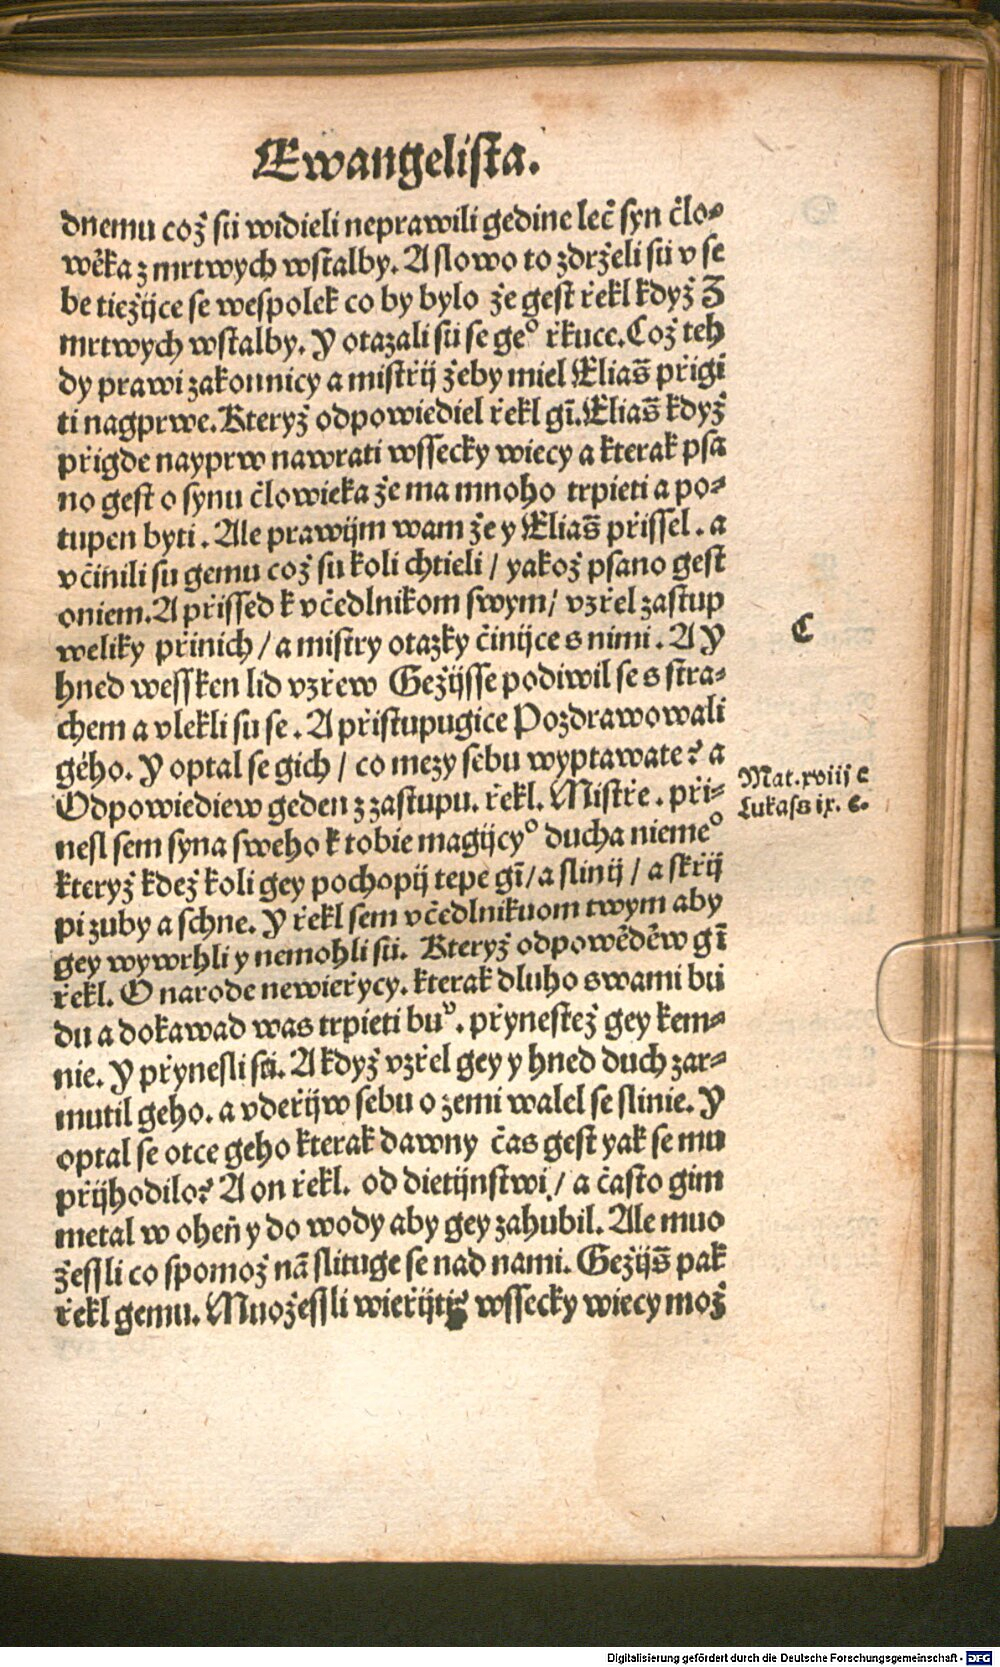 Ewangelista.
dnemu což sú widieli neprawili gedine leč syn člo-
wěka z mrtwych wstalby. A slowo to zdrželi sú v se
be tiežijce se wespolek co by bylo že gest řekl když Z
mrtwych wstalby. Y otazali sú se ge° řkuce. Což teh
dy prawi zakonnicy a mistřij žeby miel Eliaš přigi
ti nagprwe. Kteryž odpowiediel řekl gī. Eliaš když
přigde nayprw nawrati wssecky wiecy a kterak psa
no gest o synu člowieka že ma mnoho trpieti a po-
tupen byti. Ale prawijm wam že y Eliaš přissel. a
včinili su gemu což su koli chtieli / yakož psano gest
oniem. A přissed k včedlnikom swym / vzřel zastup
weliky přinich / a mistry otazky činijce s nimi. A Y
hned wessken lid vzřew Gežijsse podiwil se s stra-
chem a vlekli su se. A přistupugice Pozdrawowali
gého. Y optal se gich / co mezy sebu wyptawate? a
Odpowiediew geden z zastupu. řekl. Mistře. při-
nesl sem syna sweho k tobie magijcy° ducha nieme°
kteryž kdež koli gey pochopij tepe gī / a slinij / a skřij
pi zuby a schne. Y řekl sem včedlnikuom twym aby
gey wywrhli y nemohli sú. Kteryž odpowěděw gī
řekl. O narode newieřycy. kterak dluho s wami bú
du a dokawad was trpieti buͦ. přynestež gey kem-
nie. Y přynesli sú. A když vzřel gey y hned duch zar-
mutil geho. a vdeřijw sebu o zemi walel se slinie. Y
optal se otce geho kterak dawny čas gest yak se mu
přijhodilo? A on řekl. od dietijnstwi / a často gim
metal w oheň y do wody aby gey zahubil. Ale muo
žessli co spomož nā slituge se nad nami. Gežijš pak
řekl gemu. Muožessli wieřijti? wssecky wiecy mož
C
Mat. xviij c
Lukass ix. e.
Digitalisierung gefördert durch die Deutsche Forschungsgemeinschaft - DFG